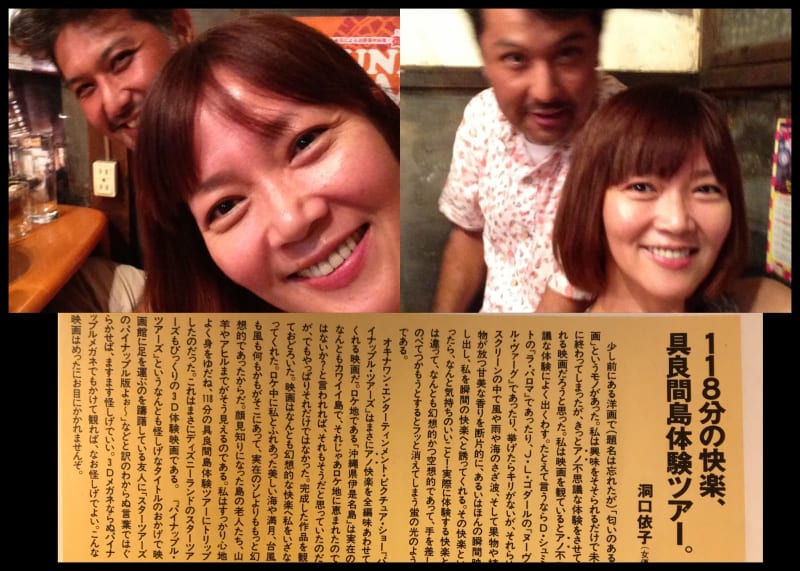 118分の快楽、
具良間島体験ツアー。
洞口依子(女優
少し前にある洋画で(題名は忘れたが)「匂いのある
画」というモノがあった。私は興味をそそられるだけで未
に終わってしまったが、きっとアノ不思議な体験をさせて
れる映画だろうと思った。私は映画を観ているとアノ不
議な体験によく出くわす。たとえて言うならD・シュミ
トの『ラ・パロマ』であったり、J・L・ゴダールの『ヌーヴ
ル・ヴァーグ』であったり、挙げたらキリがないが、それら
スクリーンの中で風や雨や海のさざ波、そして果物や植
物が放つ甘美な香りを断片的に、あるいはほんの瞬間映
し出し、私を瞬間の快楽へと誘ってくれる。その快楽とい
ったら、なんと気持ちのいいこと!実際に体験する快楽と
は違って、なんとも幻想的かつ空想的であって、手を差し
のべてつかもうとするとフッと消えてしまう蛍の光のよう
である。
オキナワン・エンターテインメント・ピクチュア・ショー『パ
イナップル・ツアーズ』はまさにアノ快楽を全編味あわせて
くれる映画だ。ロケ地である、沖縄県伊是名島は実在の
なんともカワイイ島で、それじゃあロケ地に恵まれたので
はないか!と言われれば、それもそうだと思っていたのだ
が、でもやっぱりそれだけではなかった。完成した作品を観
ておどろいた。映画はなんとも幻想的な快楽へ私をいざな
ってくれた。ロケ中に私とふれあった美しい海や満月、台風
も風も何もかもがそこにあって、実在のソレよりももっと幻
想的であったからだ。顔見知りになった島の老人たち、山
羊やアヒルまでがそう見えるのである。私はすっかり心地
よく身をゆだね、118分の具良間島体験ツアーにトリップ
したのだった。これはまさにディズニーランドのスターツア
ーズもびっくりの3D体験映画である。『パイナップル・
ツアーズ』というなんとも怪しげなタイトルのおかげで映
画館に足を運ぶのを躊躇している友人に、「スターツアーズ
のパイナップル版よぉ〜」などと訳のわからぬ言葉ではぐ
らかせば、ますます怪しげでいい。3Dメガネならぬパイナ
ップルメガネでもかけて観れば、なお怪しげでよい。こんな
映画はめったにお目にかかれませんぞ。